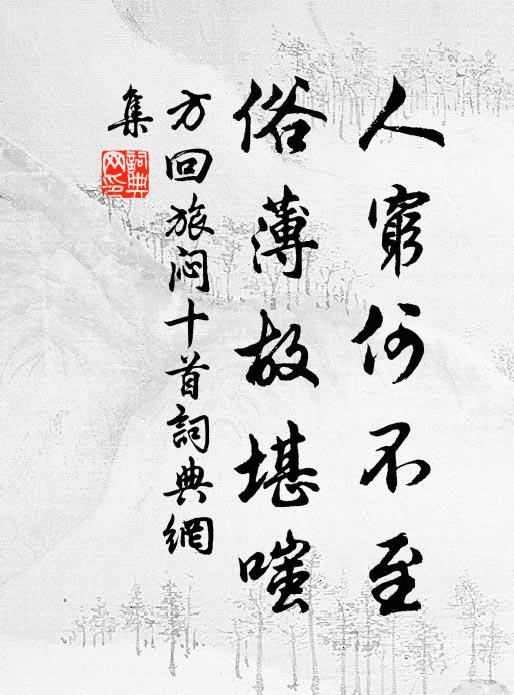 人窮何不至
俗薄故堪嗤
方回旅闷十首詞典網
集
詞典
网印